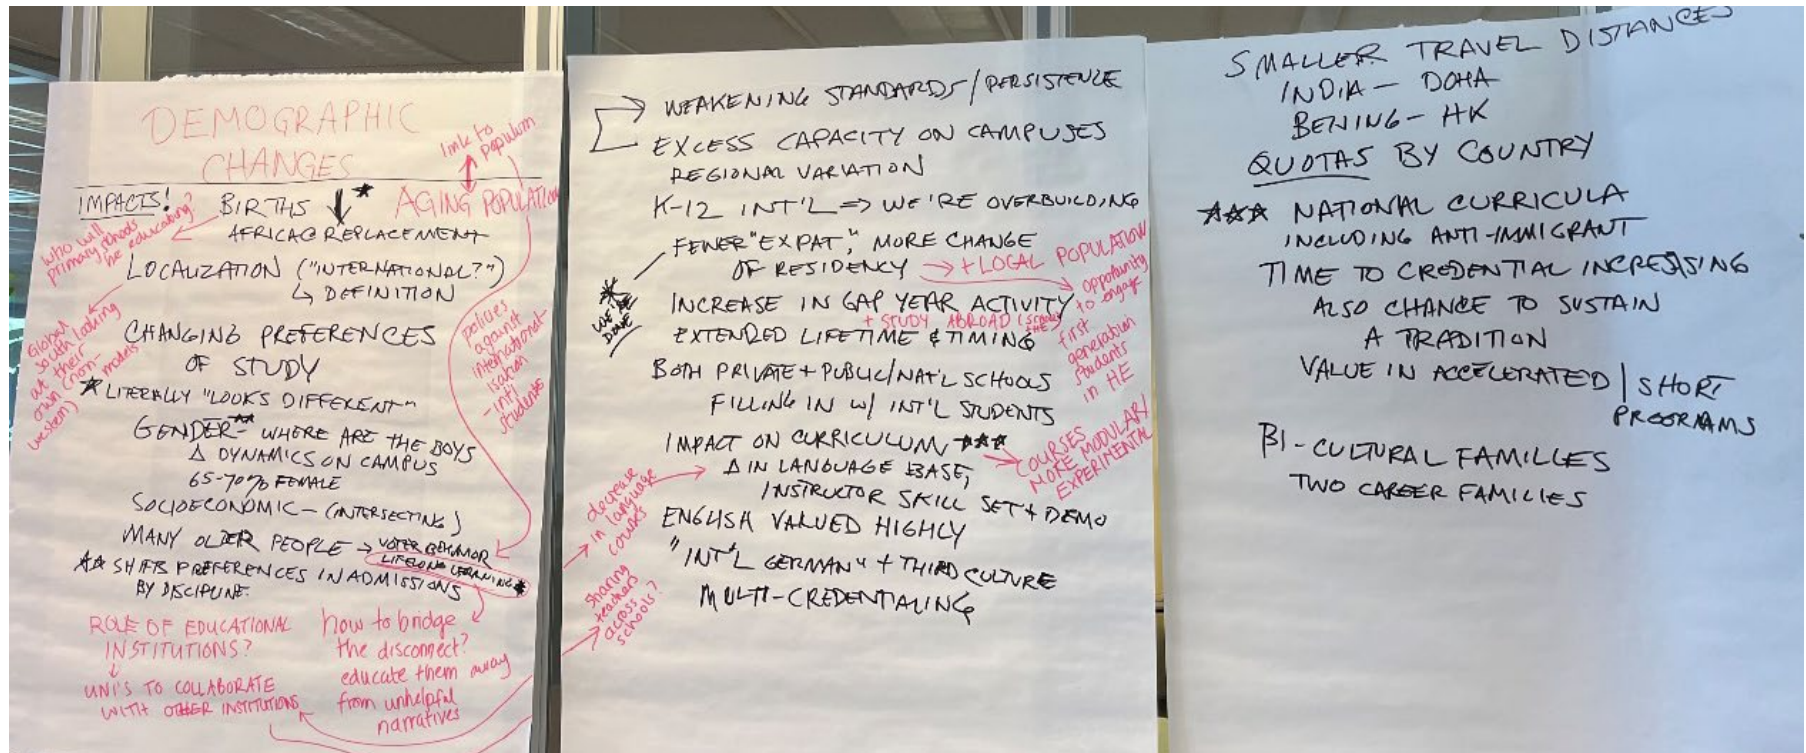 DEMOGRAPHIC
CHANGES
link to
populism
IMPACTS!
BIRTHS ↓ *
AGING POPULATION
AFRICA@REPLACEMENT
who will
primary schools
be educating?
LOCALIZATION ("INTERNATIONAL?")
↳ DEFINITION
Global
south looking
at their
own (non-
western) models
CHANGING PREFERENCES
OF STUDY
policies
against
international-
isation
- int'l
students
* LITERALLY "LOOKS DIFFERENT"
GENDER-** WHERE ARE THE BOYS
Δ DYNAMICS ON CAMPUS
65-70% FEMALE
SOCIOECONOMIC - (INTERSECTING)
MANY OLDER PEOPLE → VOTER BEHAVIOR
LIFELONG LEARNING *
** SHIFTS PREFERENCES IN ADMISSIONS
BY DISCIPLINE.
ROLE OF EDUCATIONAL
INSTITUTIONS?
↓
UNI'S TO COLLABORATE
WITH OTHER INSTITUTIONS
how to bridge
the disconnect?
educate them away
from unhelpful
narratives
→ WEAKENING STANDARDS/PERSISTENCE
EXCESS CAPACITY ON CAMPUSES
REGIONAL VARIATION
K-12 INT'L ⇒ WE'RE OVERBUILDING
FEWER "EXPAT," MORE CHANGE
OF RESIDENCY → + LOCAL POPULATION
opportunity
to engage
first
generation
students
in HE
* WE'RE
DONE
INCREASE IN GAP YEAR ACTIVITY
+ STUDY ABROAD
EXTENDED LIFETIME & TIMING
BOTH PRIVATE + PUBLIC/NAT'L SCHOOLS
FILLING IN W/ INT'L STUDENTS
IMPACT ON CURRICULUM ***
COURSES
MORE MODULAR/
EXPERIMENTAL
Δ IN LANGUAGE BASE,
INSTRUCTOR SKILL SET + DEMO
decrease
in language
courses
ENGLISH VALUED HIGHLY
"INT'L GERMAN" + THIRD CULTURE
MULTI-CREDENTIALING
sharing
teachers
across
schools?
SMALLER TRAVEL DISTANCES
INDIA - DOHA
BEIJING - HK
QUOTAS BY COUNTRY
*** NATIONAL CURRICULA
INCLUDING ANTI-IMMIGRANT
TIME TO CREDENTIAL INCREASING
ALSO CHANCE TO SUSTAIN
A TRADITION
VALUE IN ACCELERATED / SHORT
PROGRAMS
BI-CULTURAL FAMILIES
TWO CAREER FAMILIES